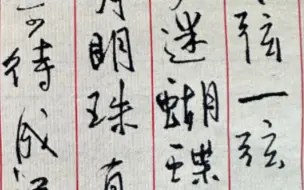 弦一弦
迷蝴蝶
月明珠有
可待成